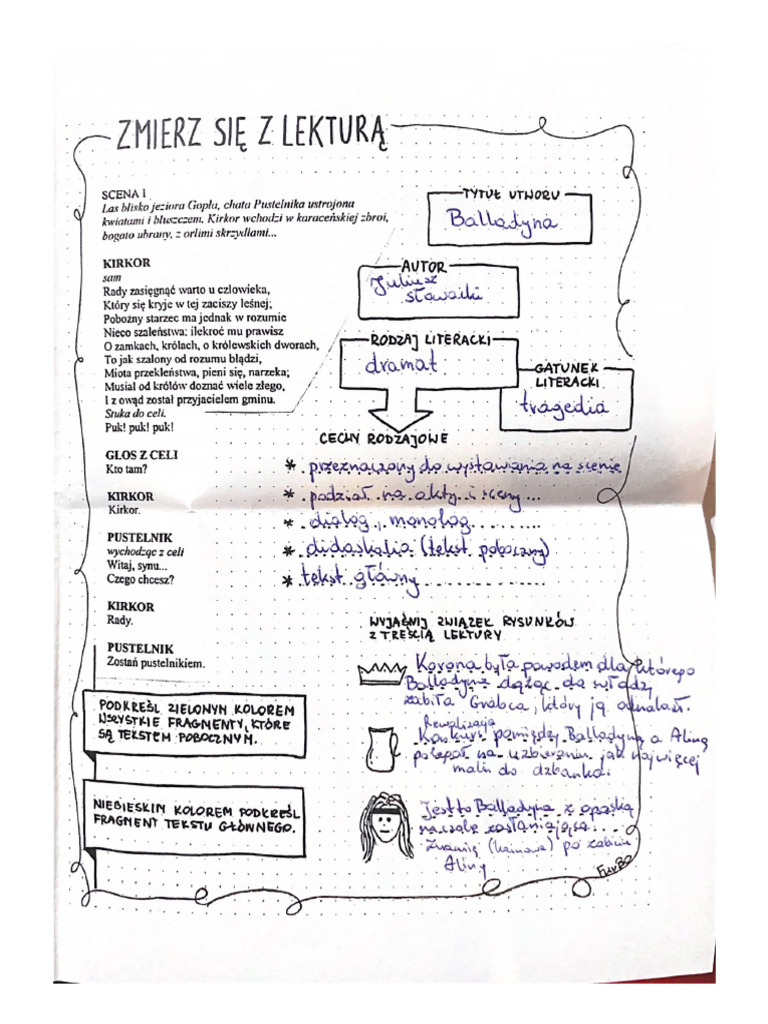 ZMIERZ SIĘ Z LEKTURĄ
SCENA I
Las blisko jeziora Gopła, chata Pustelnika ustrojona
kwiatami i bluszczem. Kirkor wchodzi w karaceńskiej zbroi,
bogato ubrany, z orlimi skrzydłami...
KIRKOR
sam
Rady zasięgnąć warto u człowieka,
Który się kryje w tej zaciszy leśnej;
Pobożny starzec ma jednak w rozumie
Nieco szaleństwa: ilekroć mu prawisz
O zamkach, królach, o królewskich dworach,
To jak szalony od rozumu błądzi,
Miota przekleństwa, pieni się, narzeka;
Musiał od królów doznać wiele złego,
I z owąd został przyjacielem gminu.
Stuka do celi.
Puk! puk! puk!
GŁOS Z CELI
Kto tam?
KIRKOR
Kirkor.
PUSTELNIK
wychodząc z celi
Witaj, synu...
Czego chcesz?
KIRKOR
Rady.
PUSTELNIK
Zostań pustelnikiem.
PODKREŚL ZIELONYM KOLOREM
WSZYSTKIE FRAGMENTY, KTÓRE
SĄ TEKSTEM POBOCZNYM.
NIEBIESKIM KOLOREM PODKREŚL
FRAGMENT TEKSTU GŁÓWNEGO.
TYTUŁ UTWORU
Balladyna
AUTOR
Juliusz
Słowacki
RODZAJ LITERACKI
dramat
GATUNEK
LITERACKI
tragedia
CECHY RODZAJOWE
* przeznaczony do wystawiania na scenie
* podział na akty i sceny...
* dialog, monolog..........
* didaskalia (tekst poboczny)
* tekst główny................
WYJAŚNIJ ZWIĄZEK RYSUNKÓW
Z TREŚCIĄ LEKTURY
Korona była powodem dla którego
Balladyna dążąc do władzy
zabiła Grabca, który ją odnalazł.
Rewalizacja
Konkurs pomiędzy Balladyną a Aliną
polegał na uzbieraniu jak najwięcej
malin do dzbanka.
Jest to Balladyna z opaską
na czole zasłaniającą...
znamię (krwawe) po zabiciu
Aliny